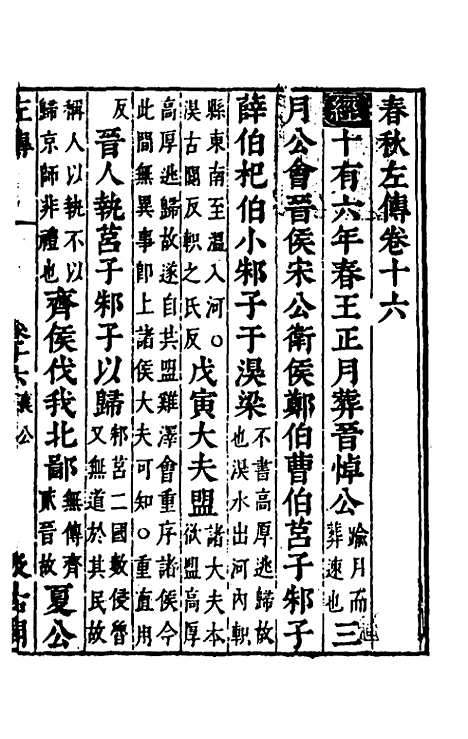 春秋左傳卷十六
經十有六年春王正月葬晉悼公踰月而葬速也三
月公會晉侯宋公衛侯鄭伯曹伯莒子邾子
薛伯杞伯小邾子于湨梁不書高厚逃歸故也湨水出河內軹
縣東南至溫入河○湨古闃反軹之氏反戊寅大夫盟諸大夫本欲盟高厚
高厚逃歸故遂自共盟雞澤會重序諸侯今此間無異事即上諸侯大夫可知○重直用
反晉人執莒子邾子以歸邾莒二國數侵魯又無道於其民故
稱人以執不以歸京師非禮也齊侯伐我北鄙無傳齊貳晉故夏公
左傳
卷十六襄公